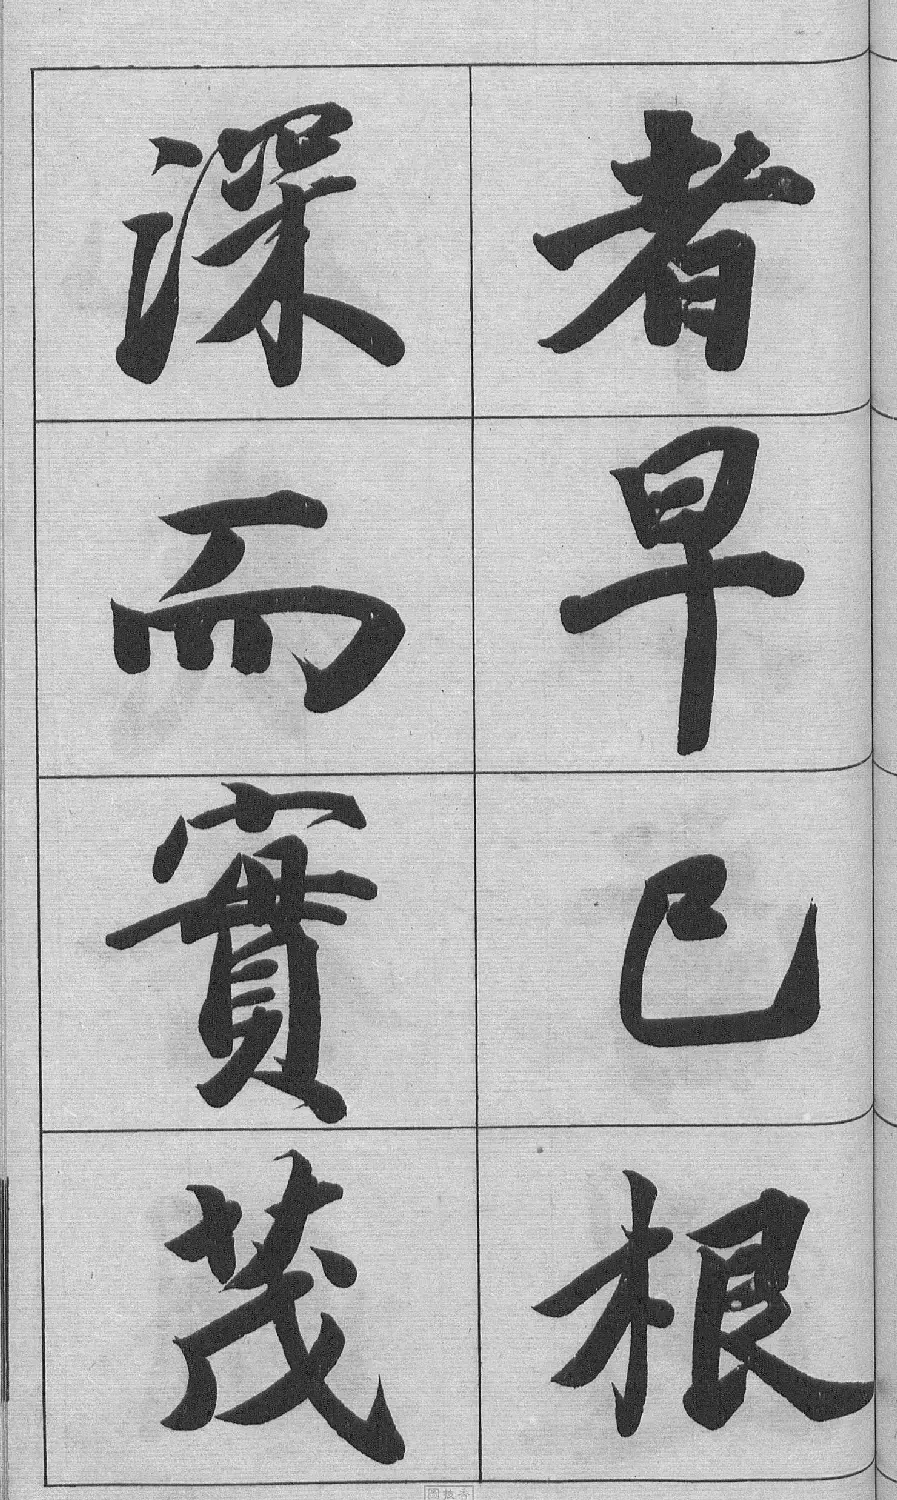 者早已根
深而實茂